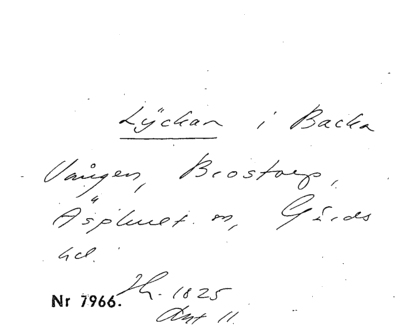 Lyckan i Backa
Vången, Brostorp,
Äsphult sn, Gärds
hd.
Nr 7966. Hh. 1825
Akt 11